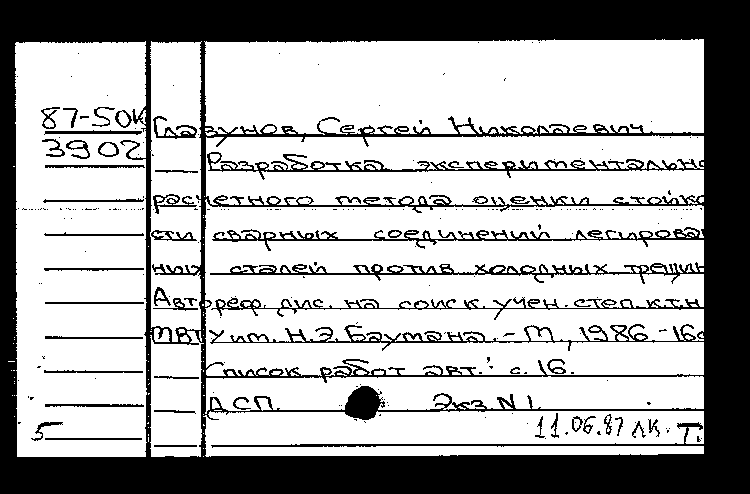 87-50К
3902
Глазунов, Сергей Николаевич.
Разработка экспериментально
расчетного метода оценки стойко
сти сварных соединений легирован
ных сталей против холодных трещин
Автореф. дис. на соиск. учен. степ. к.т.н
МВТУ им. Н.Э. Баумана. - М., 1986. - 16с
Список работ авт.: с. 16.
ДСП. Экз. N 1.
5 11.06.87 ЛК. Т.